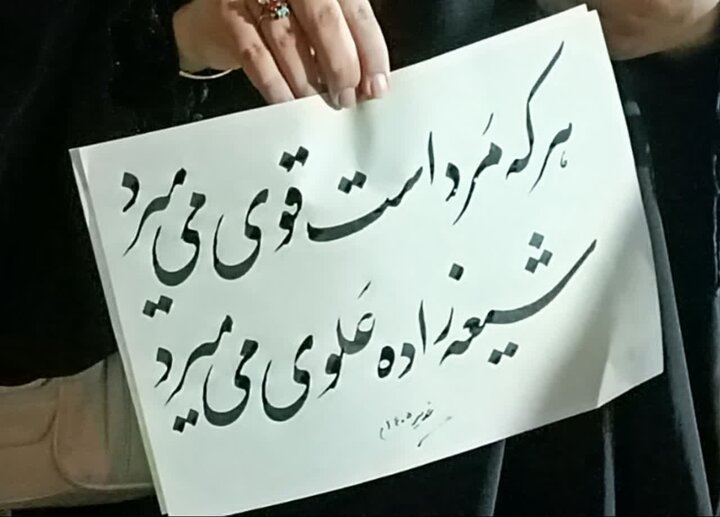 هر که مَرد است قوی می میرد
شیعه زاده عَلوی می میرد
غدیر ۱۴۰۵